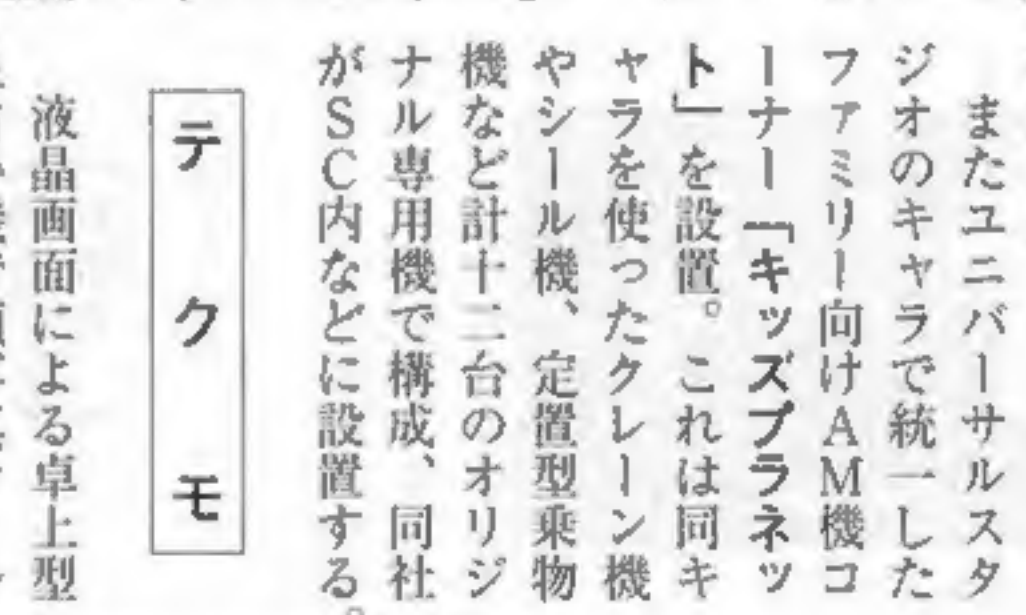 またユニバーサルスタ
ジオのキャラで統一した
ファミリー向けAM機コ
ーナー「キッズプラネッ
ト」を設置。これは同キ
ャラを使ったクレーン機
やシール機、定置型乗物
機など計十二台のオリジ
ナル専用機で構成、同社
がSC内などに設置する。
テクモ
液晶画面による卓上型